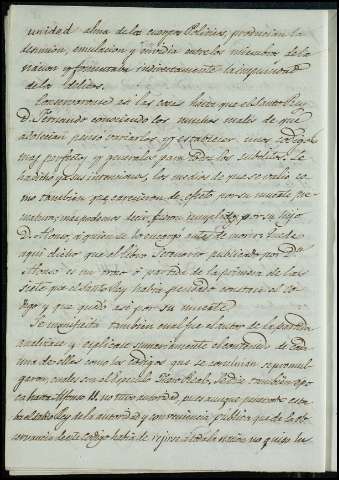 unidad alma de los cuerpos Politicos, producian la
desunion, emulacion y envidia entre los miembros de la
nacion y fomentaban indirectamente la impunidad
de los delitos.
Conservaronse asi las cosas hasta que el Santo Rey
D. Fernando conociendo los muchos males que
acosecian pensó variarlas, y establecer unos Codigos
mas perfectos y generales para todos los subditos. Se
ha dicho ya sus intenciones, los medios de que se valio co
mo tambien que carecieron de efecto por su muerte pre
matura; mas podemos decir, fueron cumplidos por su hijo
D. Alonso, á quien se lo encargó antes de morir. Queda
aqui dicho que el libro Setenario publicado por Dn
Alonso es un trozo ó partida de la primera de las
siete que el santo Rey habia pensado constase el co
digo y que quedó asi por su muerte.
Se manifiesta tambien cual fue el autor de las partidas
analizase y esplicase sumariamente el contenido de cada
una de ellas como los codigos que se concluian se promul
garon cuales son el Especulo, Fuero Real, Partidas tambien apo
ca hasta Alfonso XI. no tuvo autoridad, pues aunque penetrado esta
ba el sabio Rey de la autoridad y conveniencia publica que de la ob
servancia de este codigo habia de reportar toda la nacion no quiso